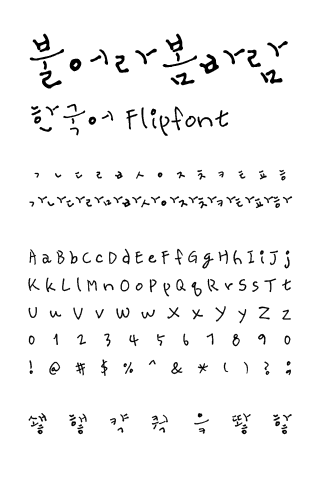 불어라봄바람
한국어 Flipfont
ㄱ ㄴ ㄷ ㄹ ㅂ ㅅ ㅇ ㅈ ㅊ ㅋ ㅌ ㅍ ㅎ
가나다라바사아자차카타파하
AaBbCcDdEeFfGgHhIiJj
KkLlMmNnOoPpQqRrSsTt
UuVvWwXxYyZz
0 1 2 3 4 5 6 7 8 9 0
! @ # $ % ^ & * ( ) ? ;